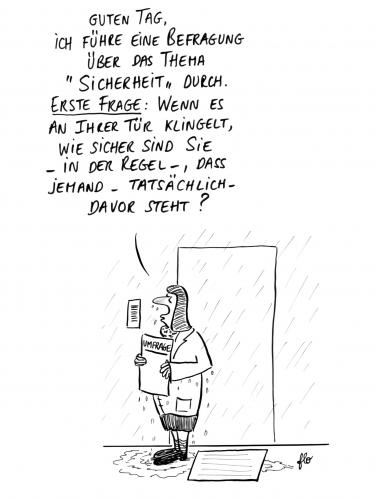 GUTEN TAG,
ICH FÜHRE EINE BEFRAGUNG
ÜBER DAS THEMA
"SICHERHEIT" DURCH.
ERSTE FRAGE: WENN ES
AN IHRER TÜR KLINGELT,
WIE SICHER SIND SIE
– IN DER REGEL –, DASS
JEMAND – TATSÄCHLICH –
DAVOR STEHT?
UMFRAGE
flo